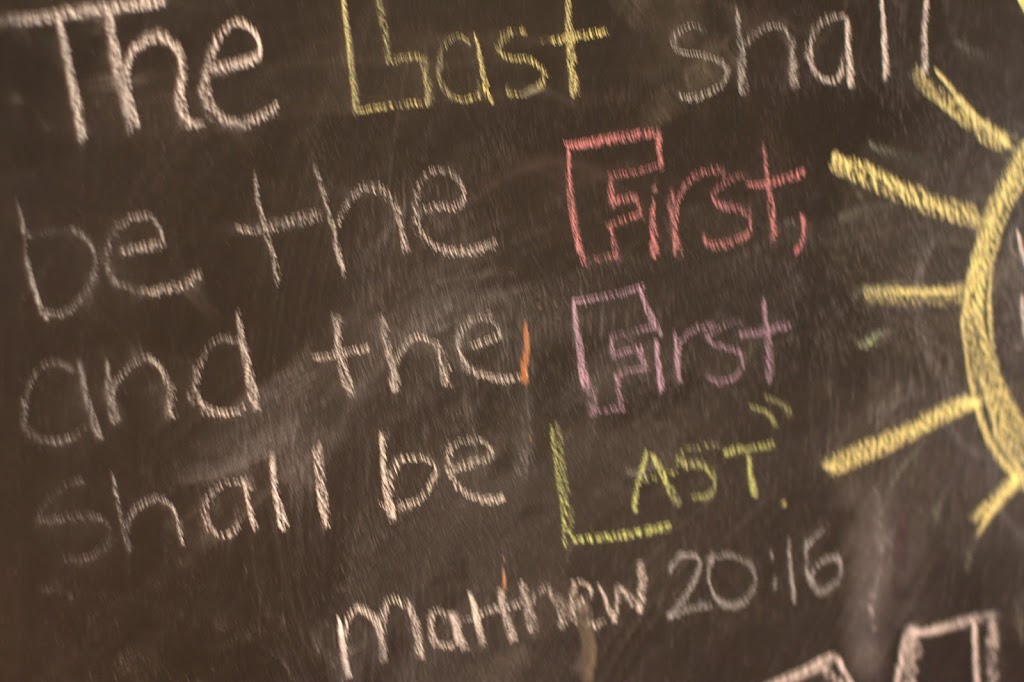 The Last shall
be the First,
and the First
shall be LAST."
Matthew 20:16